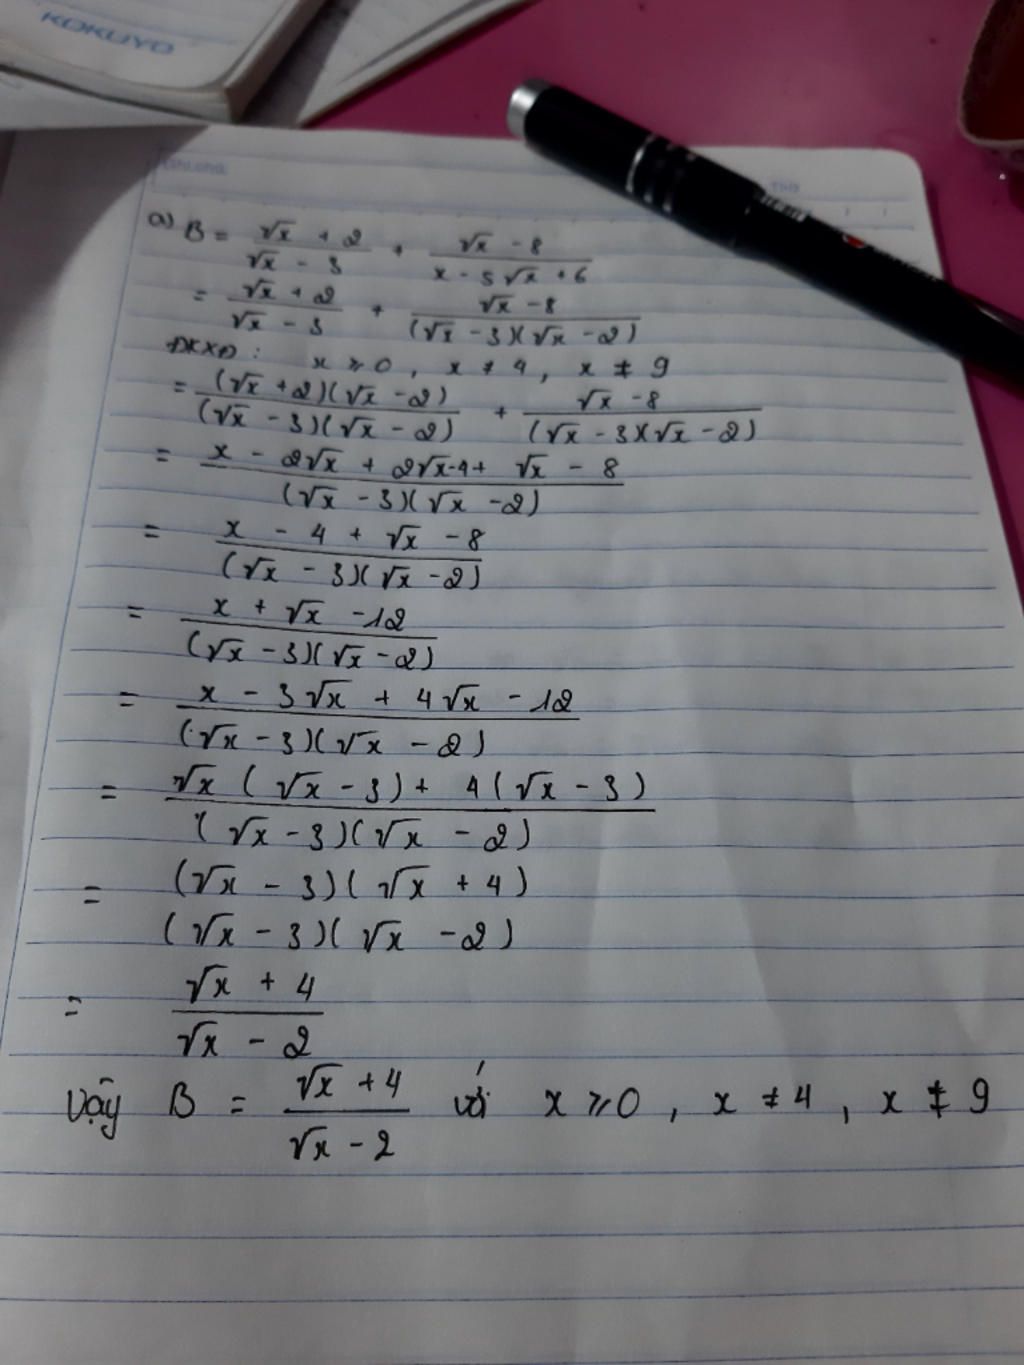 KOKUYO
a) B = (√x + 2)/(√x - 3) + (√x - 8)/(x - 5√x + 6)
= (√x + 2)/(√x - 3) + (√x - 8)/((√x - 3)(√x - 2))
ĐKXĐ: x ≥ 0, x ≠ 4, x ≠ 9
= ((√x + 2)(√x - 2))/((√x - 3)(√x - 2)) + (√x - 8)/((√x - 3)(√x - 2))
= (x - 2√x + 2√x - 4 + √x - 8)/((√x - 3)(√x - 2))
= (x - 4 + √x - 8)/((√x - 3)(√x - 2))
= (x + √x - 12)/((√x - 3)(√x - 2))
= (x - 3√x + 4√x - 12)/((√x - 3)(√x - 2))
= (√x(√x - 3) + 4(√x - 3))/((√x - 3)(√x - 2))
= (√x - 3)(√x + 4)
(√x - 3)(√x - 2)
= (√x + 4)/(√x - 2)
Vậy B = (√x + 4)/(√x - 2) với x ≥ 0, x ≠ 4, x ≠ 9